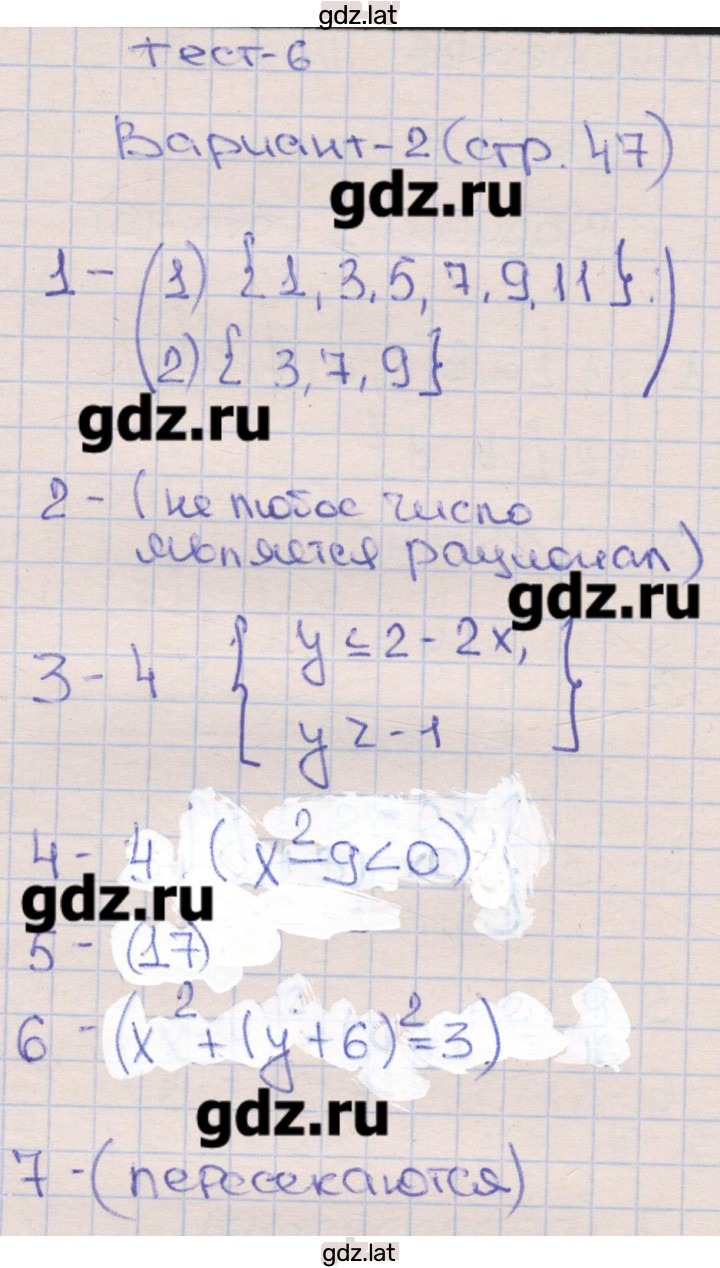 gdz.lat
тест-6
Вариант-2 (стр. 47)
gdz.ru
1 - (1) {1, 3, 5, 7, 9, 11};
2) {3, 7, 9})
gdz.ru
2 - (не любое число
является рационал)
gdz.ru
3 - 4 { y ≤ 2 - 2x,
y ≥ -1 }
4 - 4 (x² - 9 < 0)
gdz.ru
5 - (17)
6 - (x² + (y + 6)² = 3)
gdz.ru
7 - (пересекаются)
gdz.lat